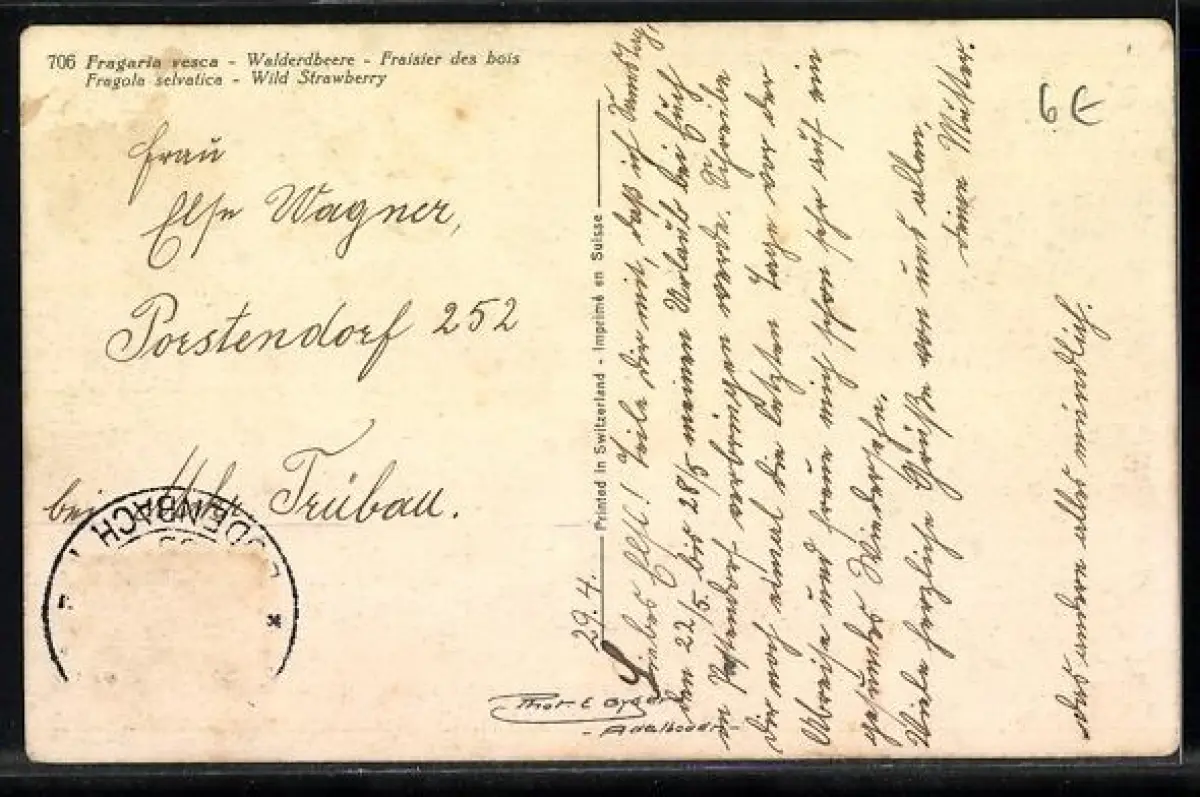 706 Fragaria vesca - Walderdbeere - Fraisier des bois
Fragola selvatica - Wild Strawberry
6 €
Frau
Else Wagner,
Porstendorf 252
bei Mähr. Trübau.
ODENBACH
Printed in Switzerland - Imprimé en Suisse
Phot. E. Gyger
- Adelboden -
29.4.
Liebes Elsl! Teile dir mit, daß ich Samstag,
den 22/5. bis 28/5 meinen Urlaub bei Euch
in Porstendorf verbringen werde. Schreibe
dir noch einmal die letzten Tage vor der
Abreise und freue mich schon sehr auf ein
gesundes Wiedersehn.
Viele herzliche Grüße von uns allen,
deine Mutter.
Das andere alles mündlich.